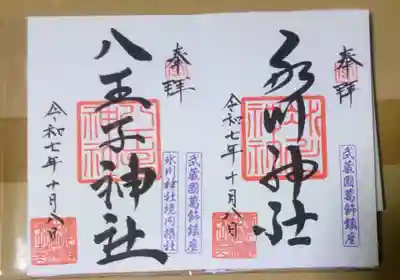 奉拝
氷川神社
武蔵國葛飾鎮座
令和七年十月八日
奉拝
八王子神社
武蔵國葛飾鎮座
氷川神社境内摂社
令和七年十月八日